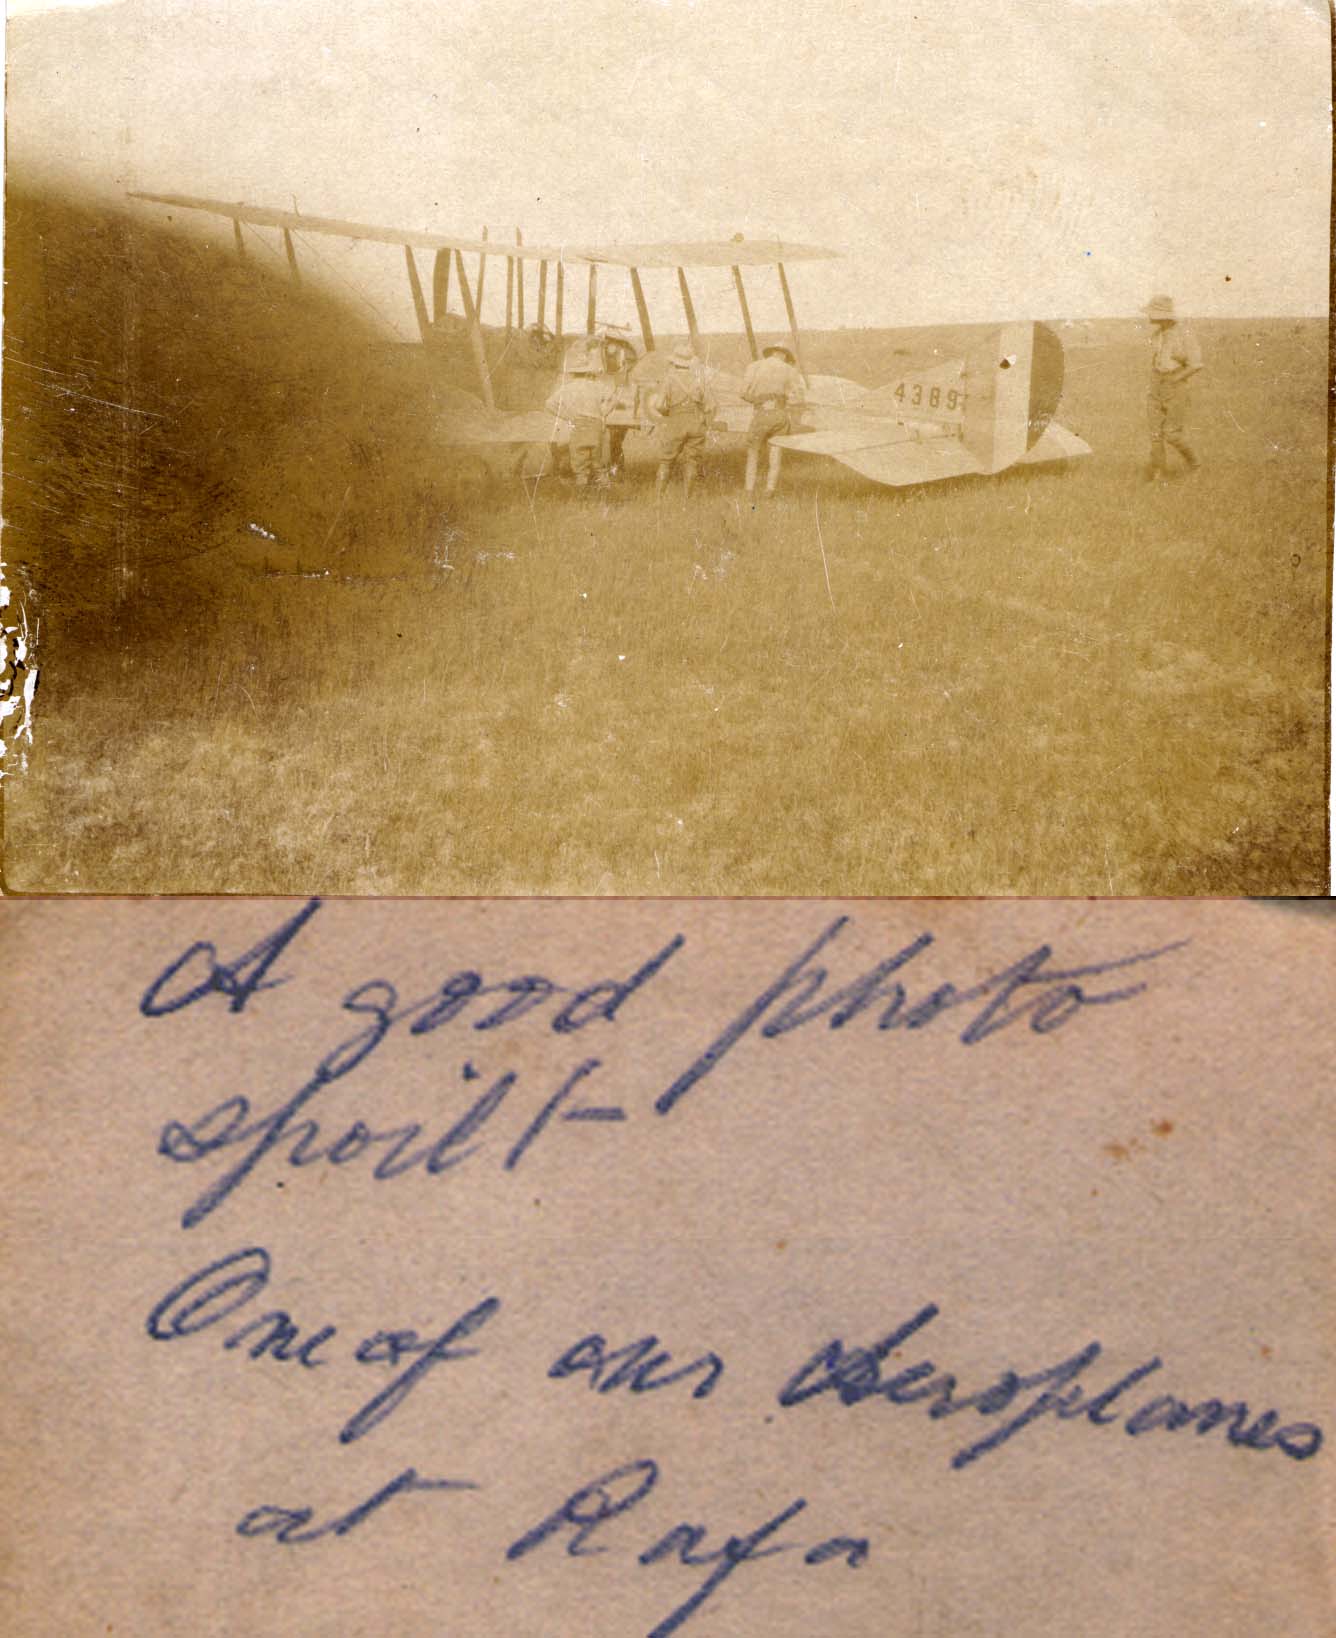 4389
A good photo
spoilt
One of our Aeroplanes
at Rafa